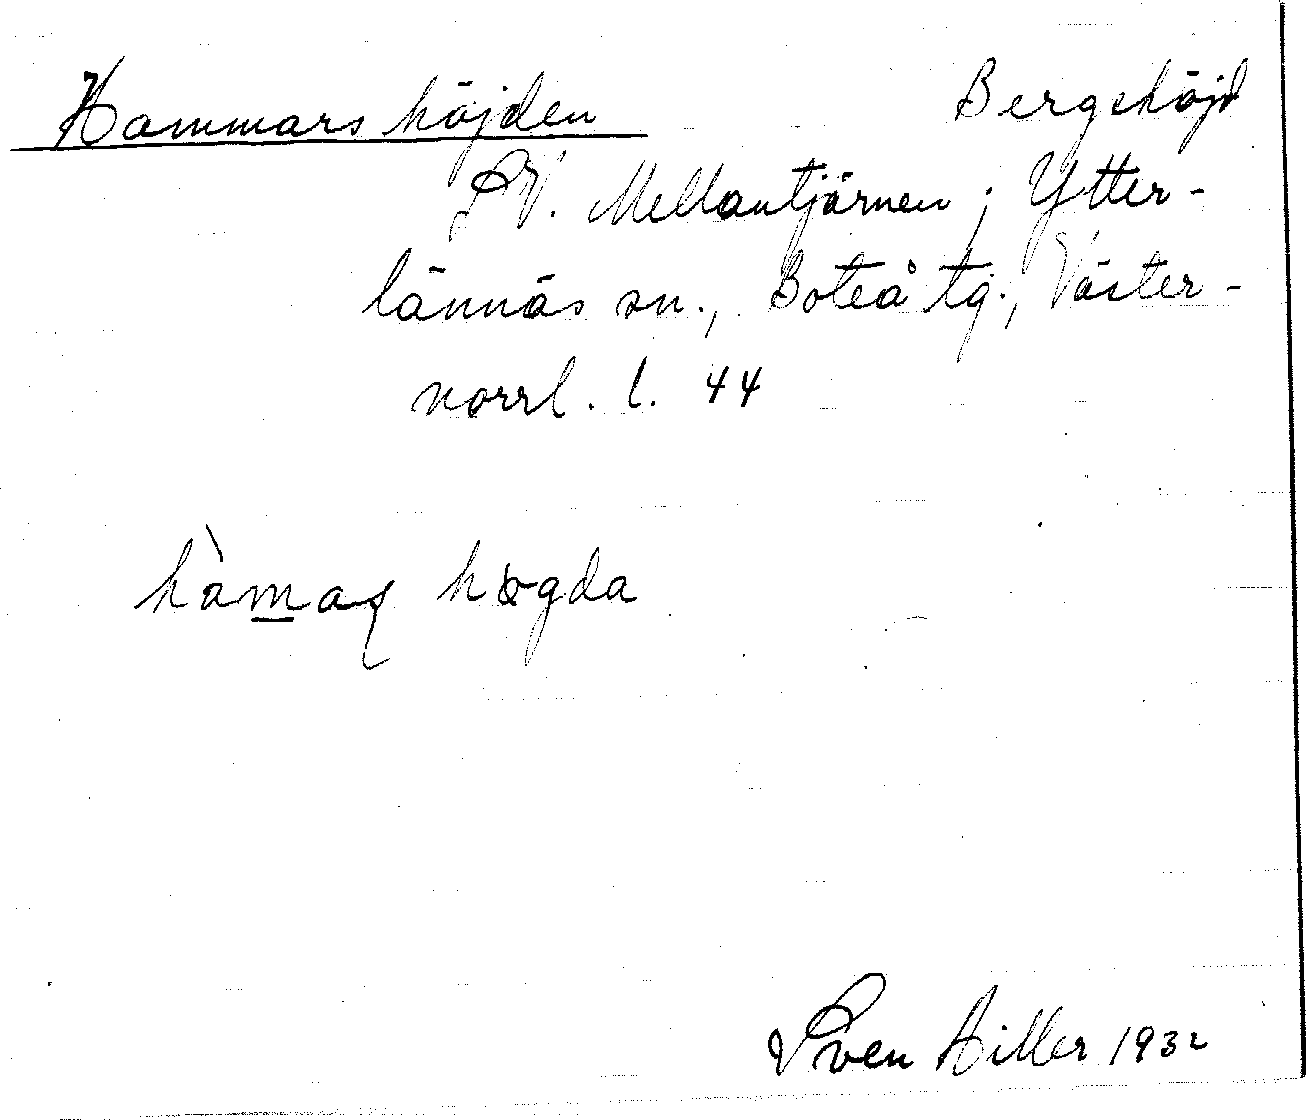 Hammarshöjden Bergshöjd
SV. Mellantjärnen; Ytter-
lännäs sn., Boteå tg., Väster-
norrl. l. 44
hògda
Sven Hiller 1932